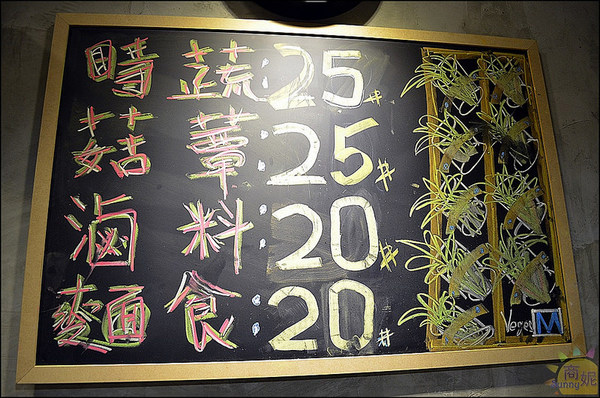 時蔬:25#
菇蕈:25#
滷料:20#
麵食:20#
Veget M
商妮
Sunny